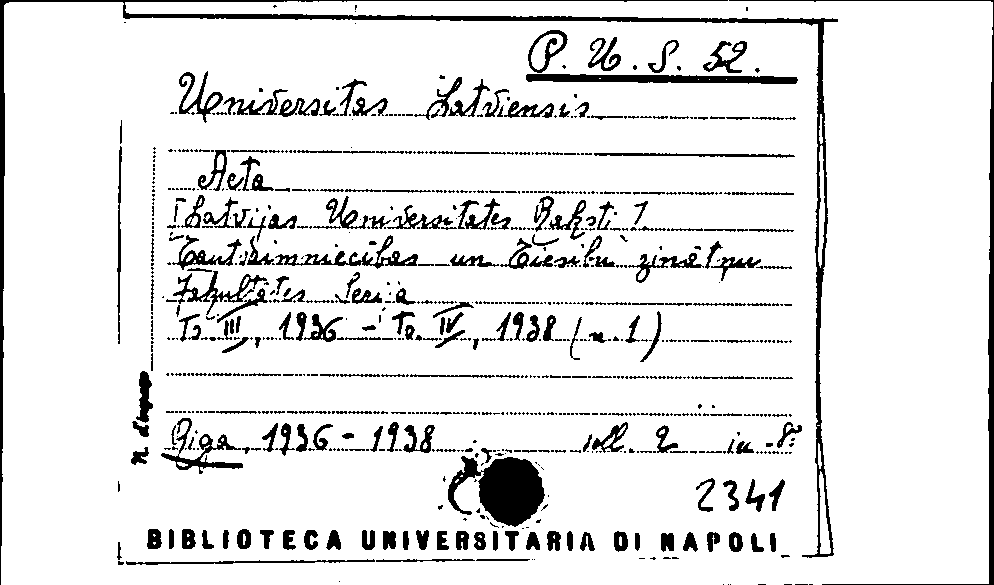 P. U. S. 52.
Universitas Latviensis
Acta
[Latvijas Universitates Raksti].
Tautsaimniecibas un Tiesibu zinātņu
Fakultates Serija
To. III, 1936 - To. IV, 1938 (n. 1)
Riga, 1936 - 1938 voll. 2 in -8°
N. d'ingresso
2341
BIBLIOTECA UNIVERSITARIA DI NAPOLI